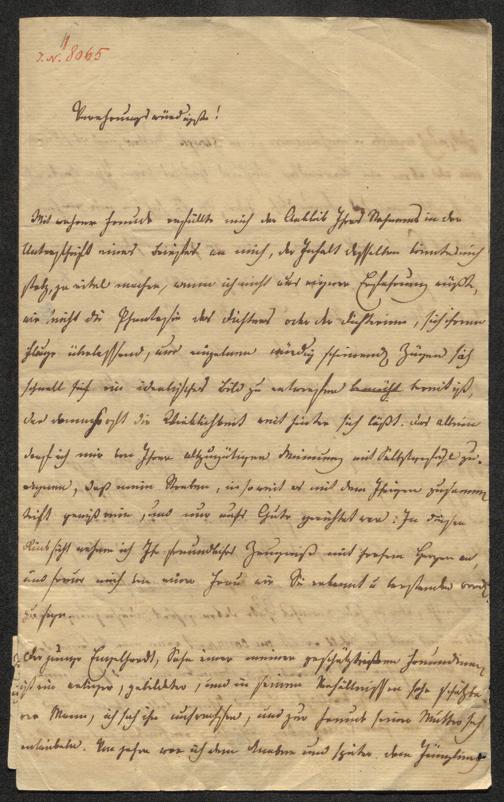 I.N. 8065
Verehrungswürdigste!
Mit wahrer Freude erfüllte mich der Anblick Ihres Nahmens in der
Unterschrift eines Briefes an mich, der Inhalt desselben könnte mich
stolz, ja eitel machen, wenn ich nicht aus eigener Erfahrung wüßte,
wie leicht die Phantasie des Dichters oder der Dichterinn, sich ihrem
Fluge überlassend, aus einzelnen würdig scheinenden Zügen sich
schnell ein idealisches Bild zu entwerfen bereit ist,
der die Wirklichkeit weit hinter sich läßt. Das allein
darf ich mir von Ihrer allzugütigen Meinung mit Selbstgefühl zu-
eignen, daß mein Streben, in so weit es mit dem Ihrigen zusammen
trifft gewiß rein, und nur aufs Gute gerichtet war. In dieser
Hinsicht nehme ich Ihr freundliches Zeugniß mit frohem Herzen an
und freue mich von einer Frau wie Sie erkannt u verstanden worden
zu seyn.
Der junge Engelhardt, Sohn einer meiner geschätztesten Freundinnen
ist ein artiger, gebildeter, und in seinen Verhältnissen sehr schätzba-
rer Mann, ich sah ihn aufwachsen, und zur Freude seiner Mutter sich
entwickeln. Vor Jahren war ich dem Knaben und später dem Jüngling